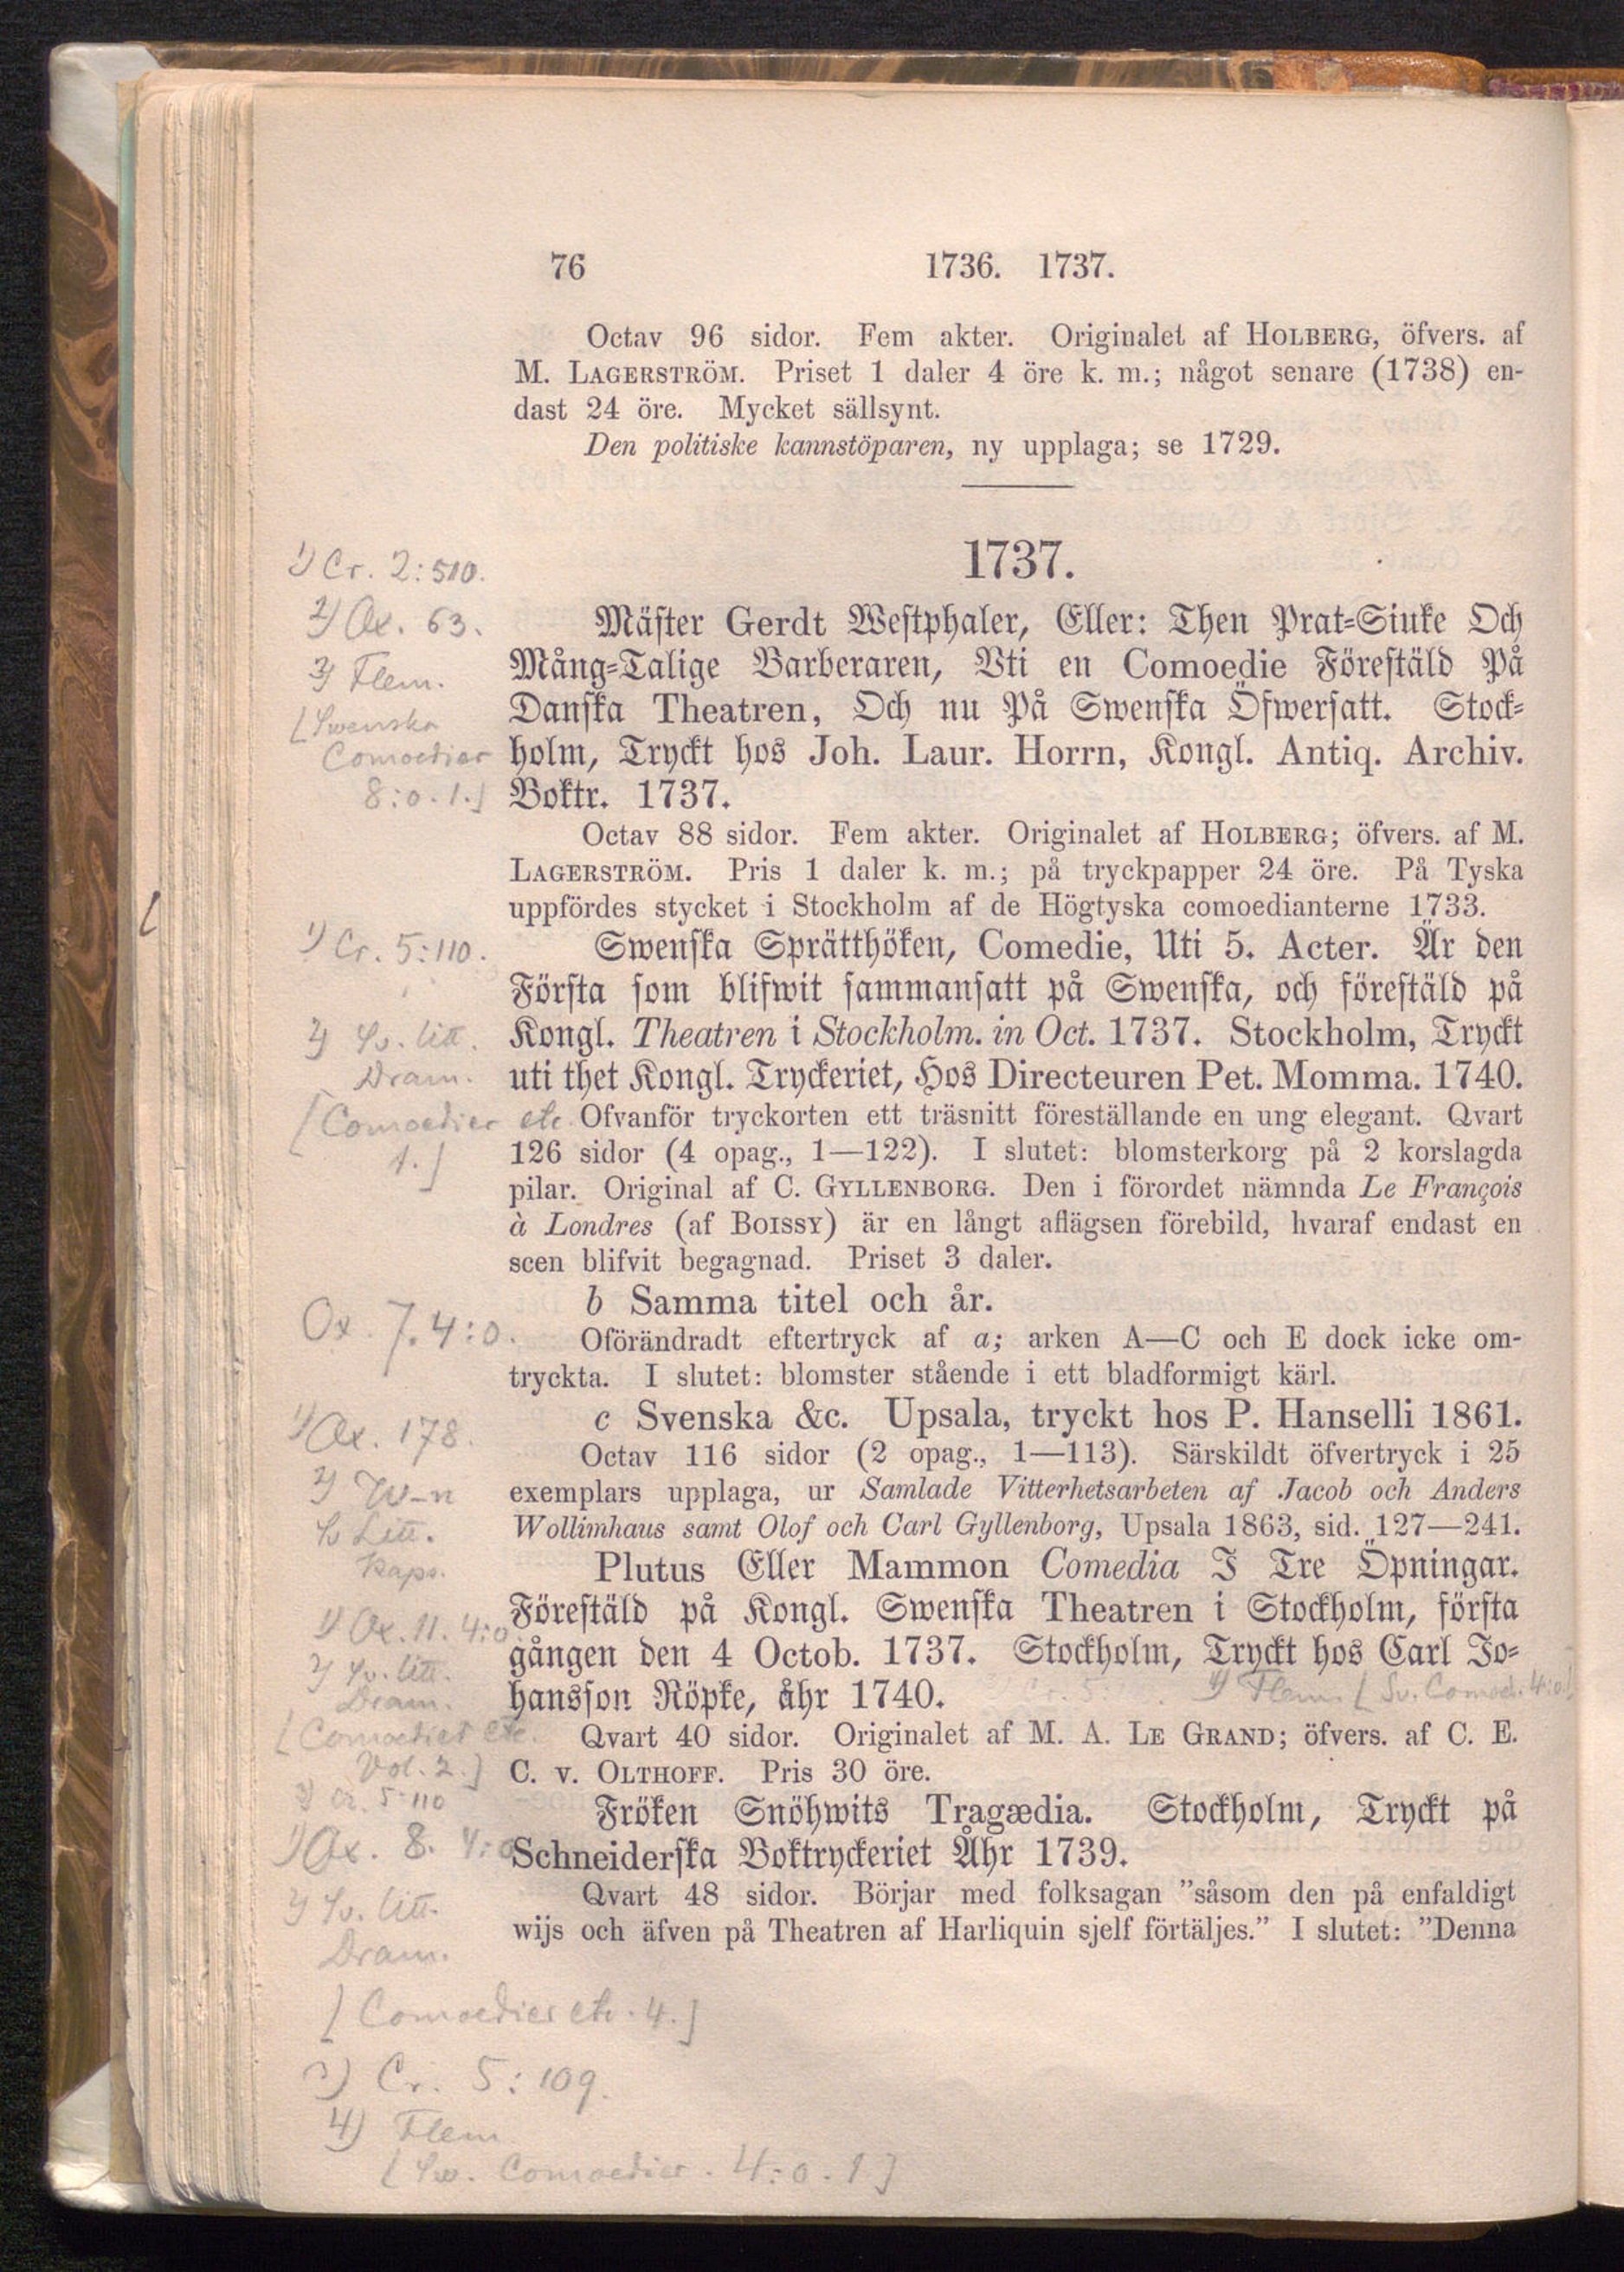 76 1736. 1737.
Octav 96 sidor. Fem akter. Originalet af HOLBERG, öfvers. af
M. LAGERSTRÖM. Priset 1 daler 4 öre k. m.; något senare (1738) en-
dast 24 öre. Mycket sällsynt.
Den politiske kannstöparen, ny upplaga; se 1729.
1737.
1) Cr. 2:510.
2) Ox. 63.
3) Flem.
[Swenska
Comoedier
8:o. 1.]
Mäster Gerdt Westphaler, Eller: Then Prat-Siuke Och
Mång-Talige Barberaren, Vti en Comoedie Föreställd På
Danska Theatren, Och nu På Swenska Öfwersatt. Stock-
holm, Tryckt hos Joh. Laur. Horrn, Kongl. Antiq. Archiv.
Boktr. 1737.
Octav 88 sidor. Fem akter. Originalet af HOLBERG; öfvers. af M.
LAGERSTRÖM. Pris 1 daler k. m.; på tryckpapper 24 öre. På Tyska
uppfördes stycket i Stockholm af de Högtyska comoedianterne 1733.
1) Cr. 5:110.
2) Sv. litt.
Dram.
[Comoedier etc.
1.]
Swenska Sprätthöken, Comedie, Uti 5. Acter. Är den
Första som blifwit sammansatt på Swenska, och föreställd på
Kongl. Theatren i Stockholm. in Oct. 1737. Stockholm, Tryckt
uti thet Kongl. Tryckeriet, Hos Directeuren Pet. Momma. 1740.
Ofvanför tryckorten ett träsnitt föreställande en ung elegant. Qvart
126 sidor (4 opag., 1—122). I slutet: blomsterkorg på 2 korslagda
pilar. Original af C. GYLLENBORG. Den i förordet nämnda Le François
à Londres (af BOISSY) är en långt aflägsen förebild, hvaraf endast en
scen blifvit begagnad. Priset 3 daler.
b Samma titel och år.
Ox. 7. 4:o.
Oförändradt eftertryck af a; arken A—C och E dock icke om-
tryckta. I slutet: blomster stående i ett bladformigt kärl.
1) Ox. 178.
2) W-n
Sv Litt.
Kaps.
c Svenska &c. Upsala, tryckt hos P. Hanselli 1861.
Octav 116 sidor (2 opag., 1—113). Särskildt öfvertryck i 25
exemplars upplaga, ur Samlade Vitterhetsarbeten af Jacob och Anders
Wollimhaus samt Olof och Carl Gyllenborg, Upsala 1863, sid. 127—241.
1) Ox. 11. 4:o
2) Sv. litt.
Dram.
[Comoedier etc.
Vol. 2.]
3) Cr. 5:110
Plutus Eller Mammon Comedia I Tre Öpningar.
Föreställd på Kongl. Swenska Theatren i Stockholm, första
gången den 4 Octob. 1737. Stockholm, Tryckt hos Carl Jo-
hansson Röpke, åhr 1740.
4) Flem. [Sv. Comoed. 4:o.1]
Qvart 40 sidor. Originalet af M. A. LE GRAND; öfvers. af C. E.
C. v. OLTHOFF. Pris 30 öre.
1) Ox. 8. 4:o
2) Sv. litt.
Dram.
Fröken Snöhwits Tragædia. Stockholm, Tryckt på
Schneiderska Boktryckeriet Åhr 1739.
Qvart 48 sidor. Börjar med folksagan ”såsom den på enfaldigt
wijs och äfven på Theatren af Harliquin sjelf förtäljes.” I slutet: ”Denna
[Comoedier etc. 4.]
3) Cr. 5:109.
4) Flem
[Sw. Comoedier. 4:o. 1]